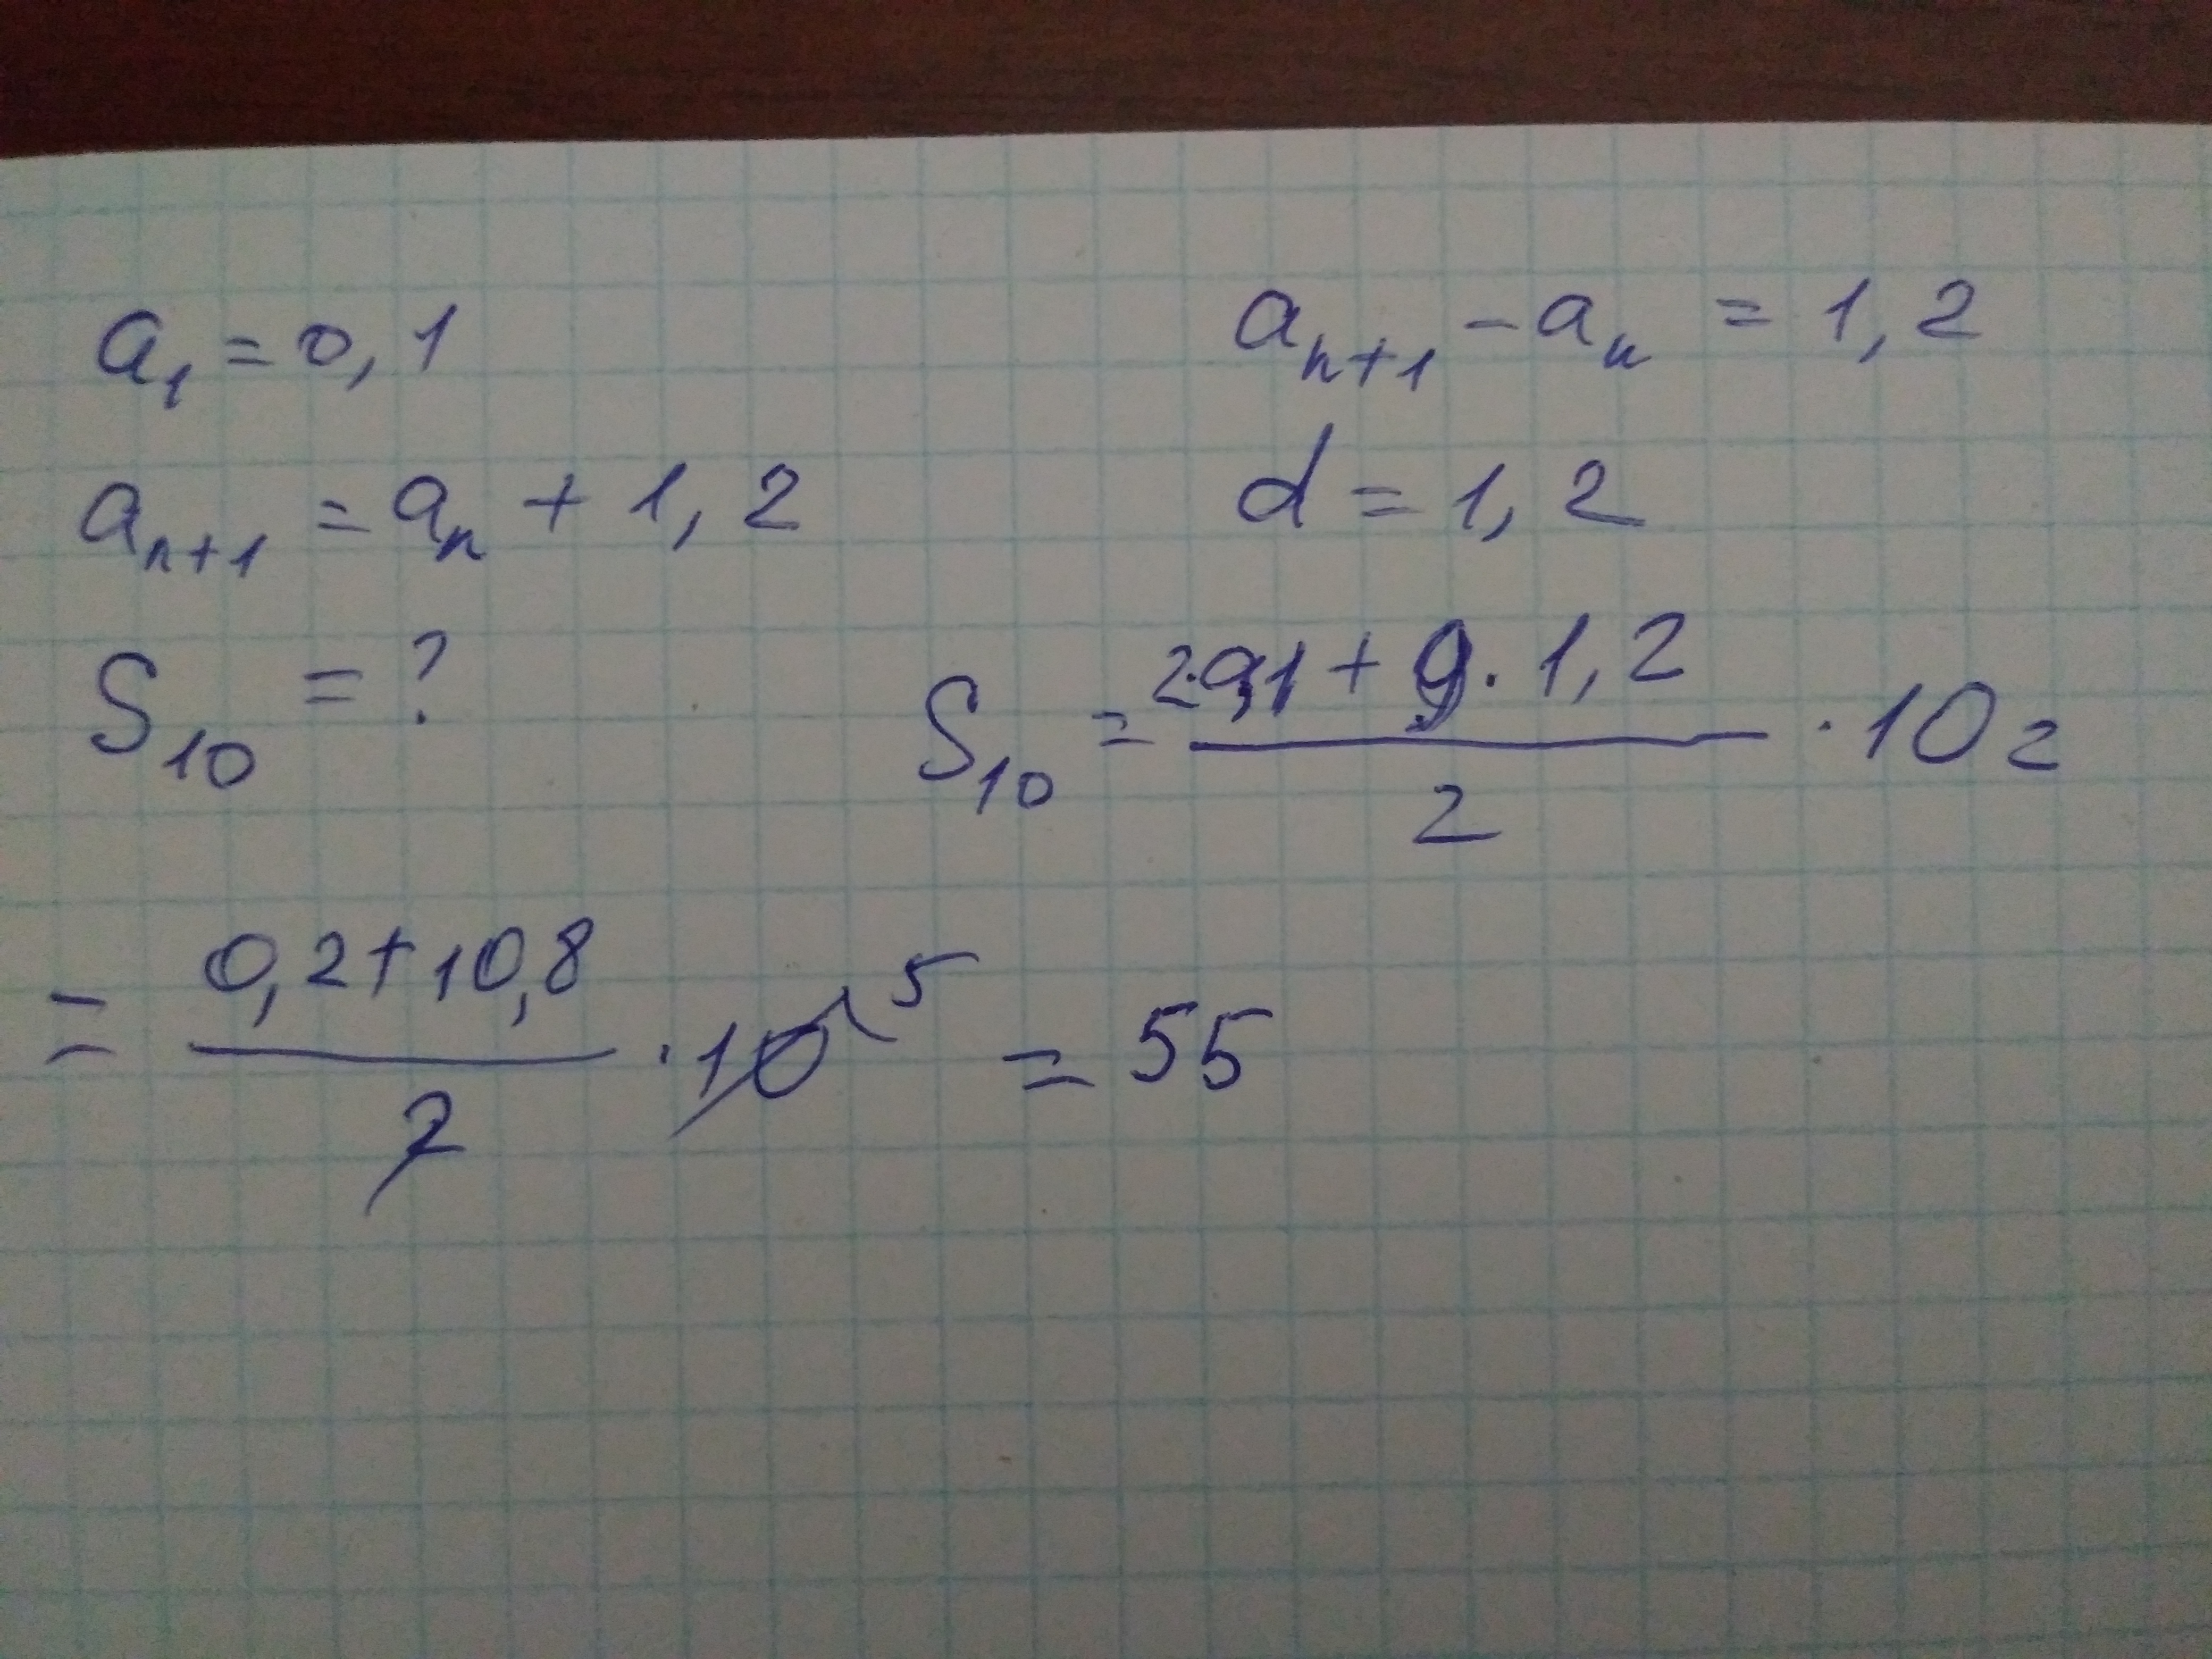 a₁ = 0,1
aₙ₊₁ - aₙ = 1,2
aₙ₊₁ = aₙ + 1,2
d = 1,2
S₁₀ = ?
S₁₀ = (2·0,1 + 9·1,2)/2 · 10 =
= (0,2+10,8)/2 · 10 5 = 55